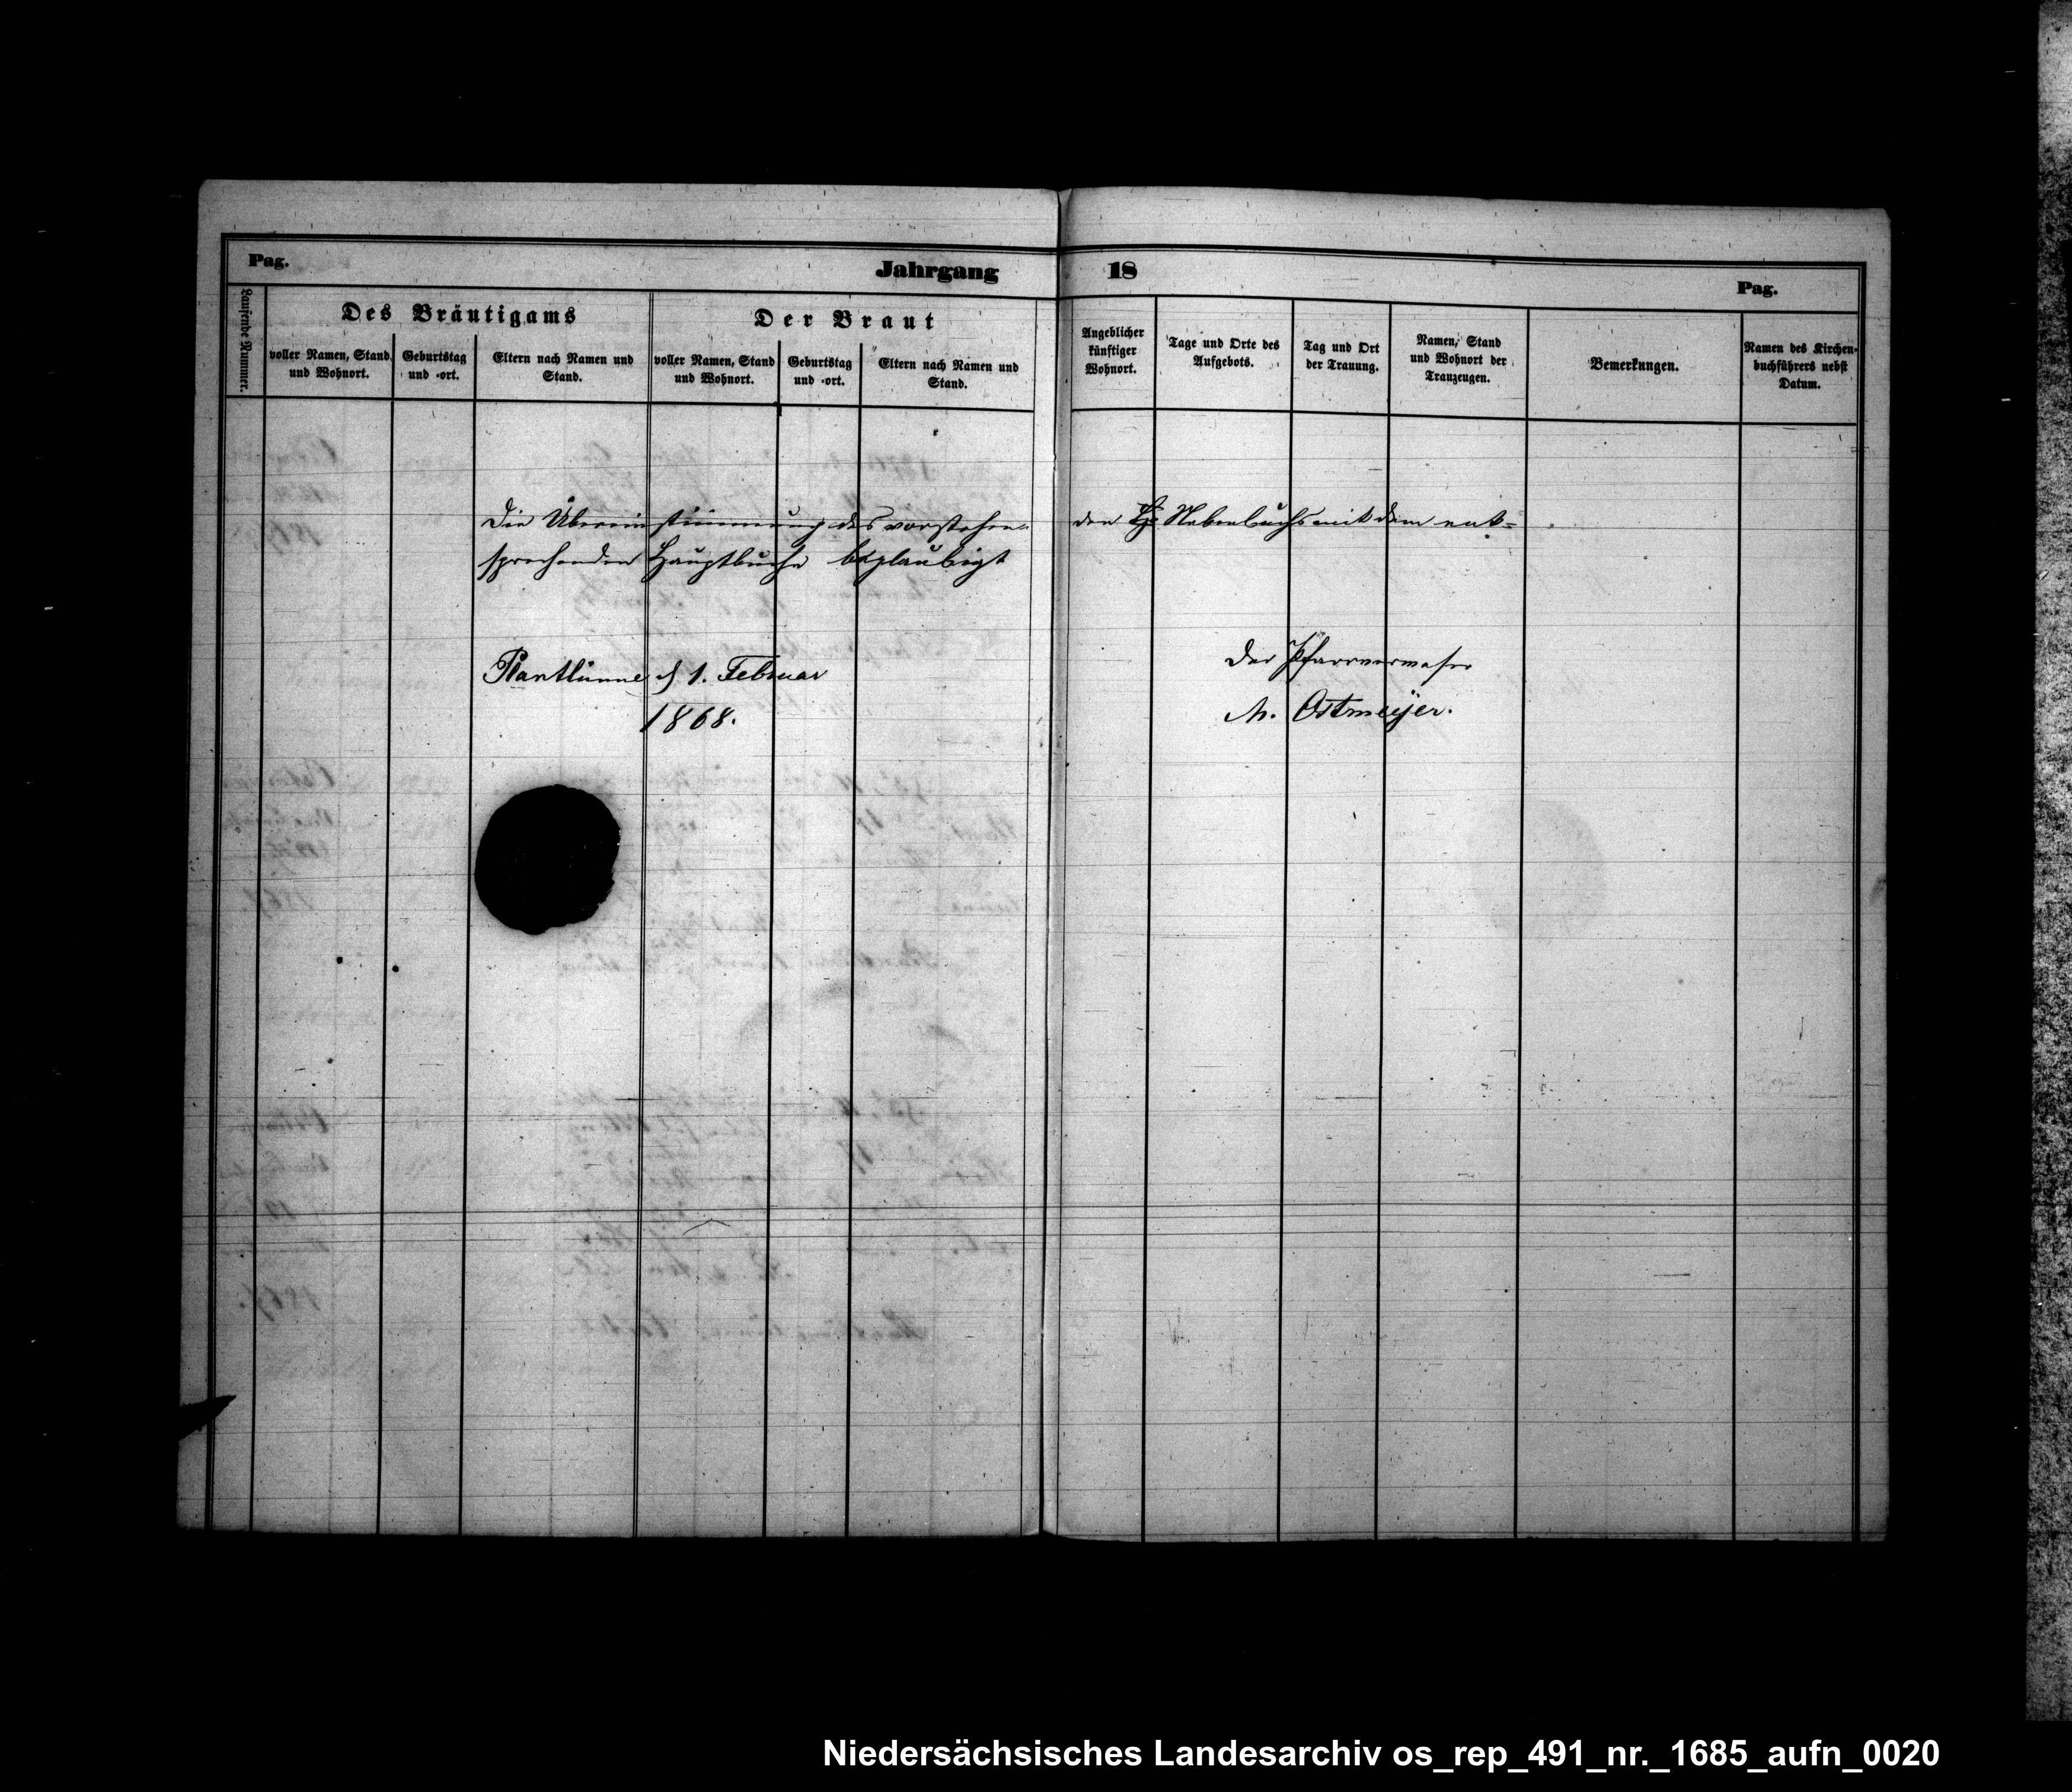 Pag.
Jahrgang 18
Pag.
Laufende Nummer.
Des Bräutigams
Der Braut
voller Namen, Stand und Wohnort.
Geburtstag und -ort.
Eltern nach Namen und Stand.
voller Namen, Stand und Wohnort.
Geburtstag und -ort.
Eltern nach Namen und Stand.
Angeblicher künftiger Wohnort.
Tage und Orte des Aufgebots.
Tag und Ort der Trauung.
Namen, Stand und Wohnort der Trauzeugen.
Bemerkungen.
Namen des Kirchenbuchführers nebst Datum.
Die Übereinstimmung des vorstehenden Nebenbuchs mit dem ent-
sprechenden Hauptbuche beglaubigt
Plantlünne d 1. Februar
1868.
Der Pfarrverweser
M. Ostmeÿer.
Niedersächsisches Landesarchiv os_rep_491_nr._1685_aufn_0020